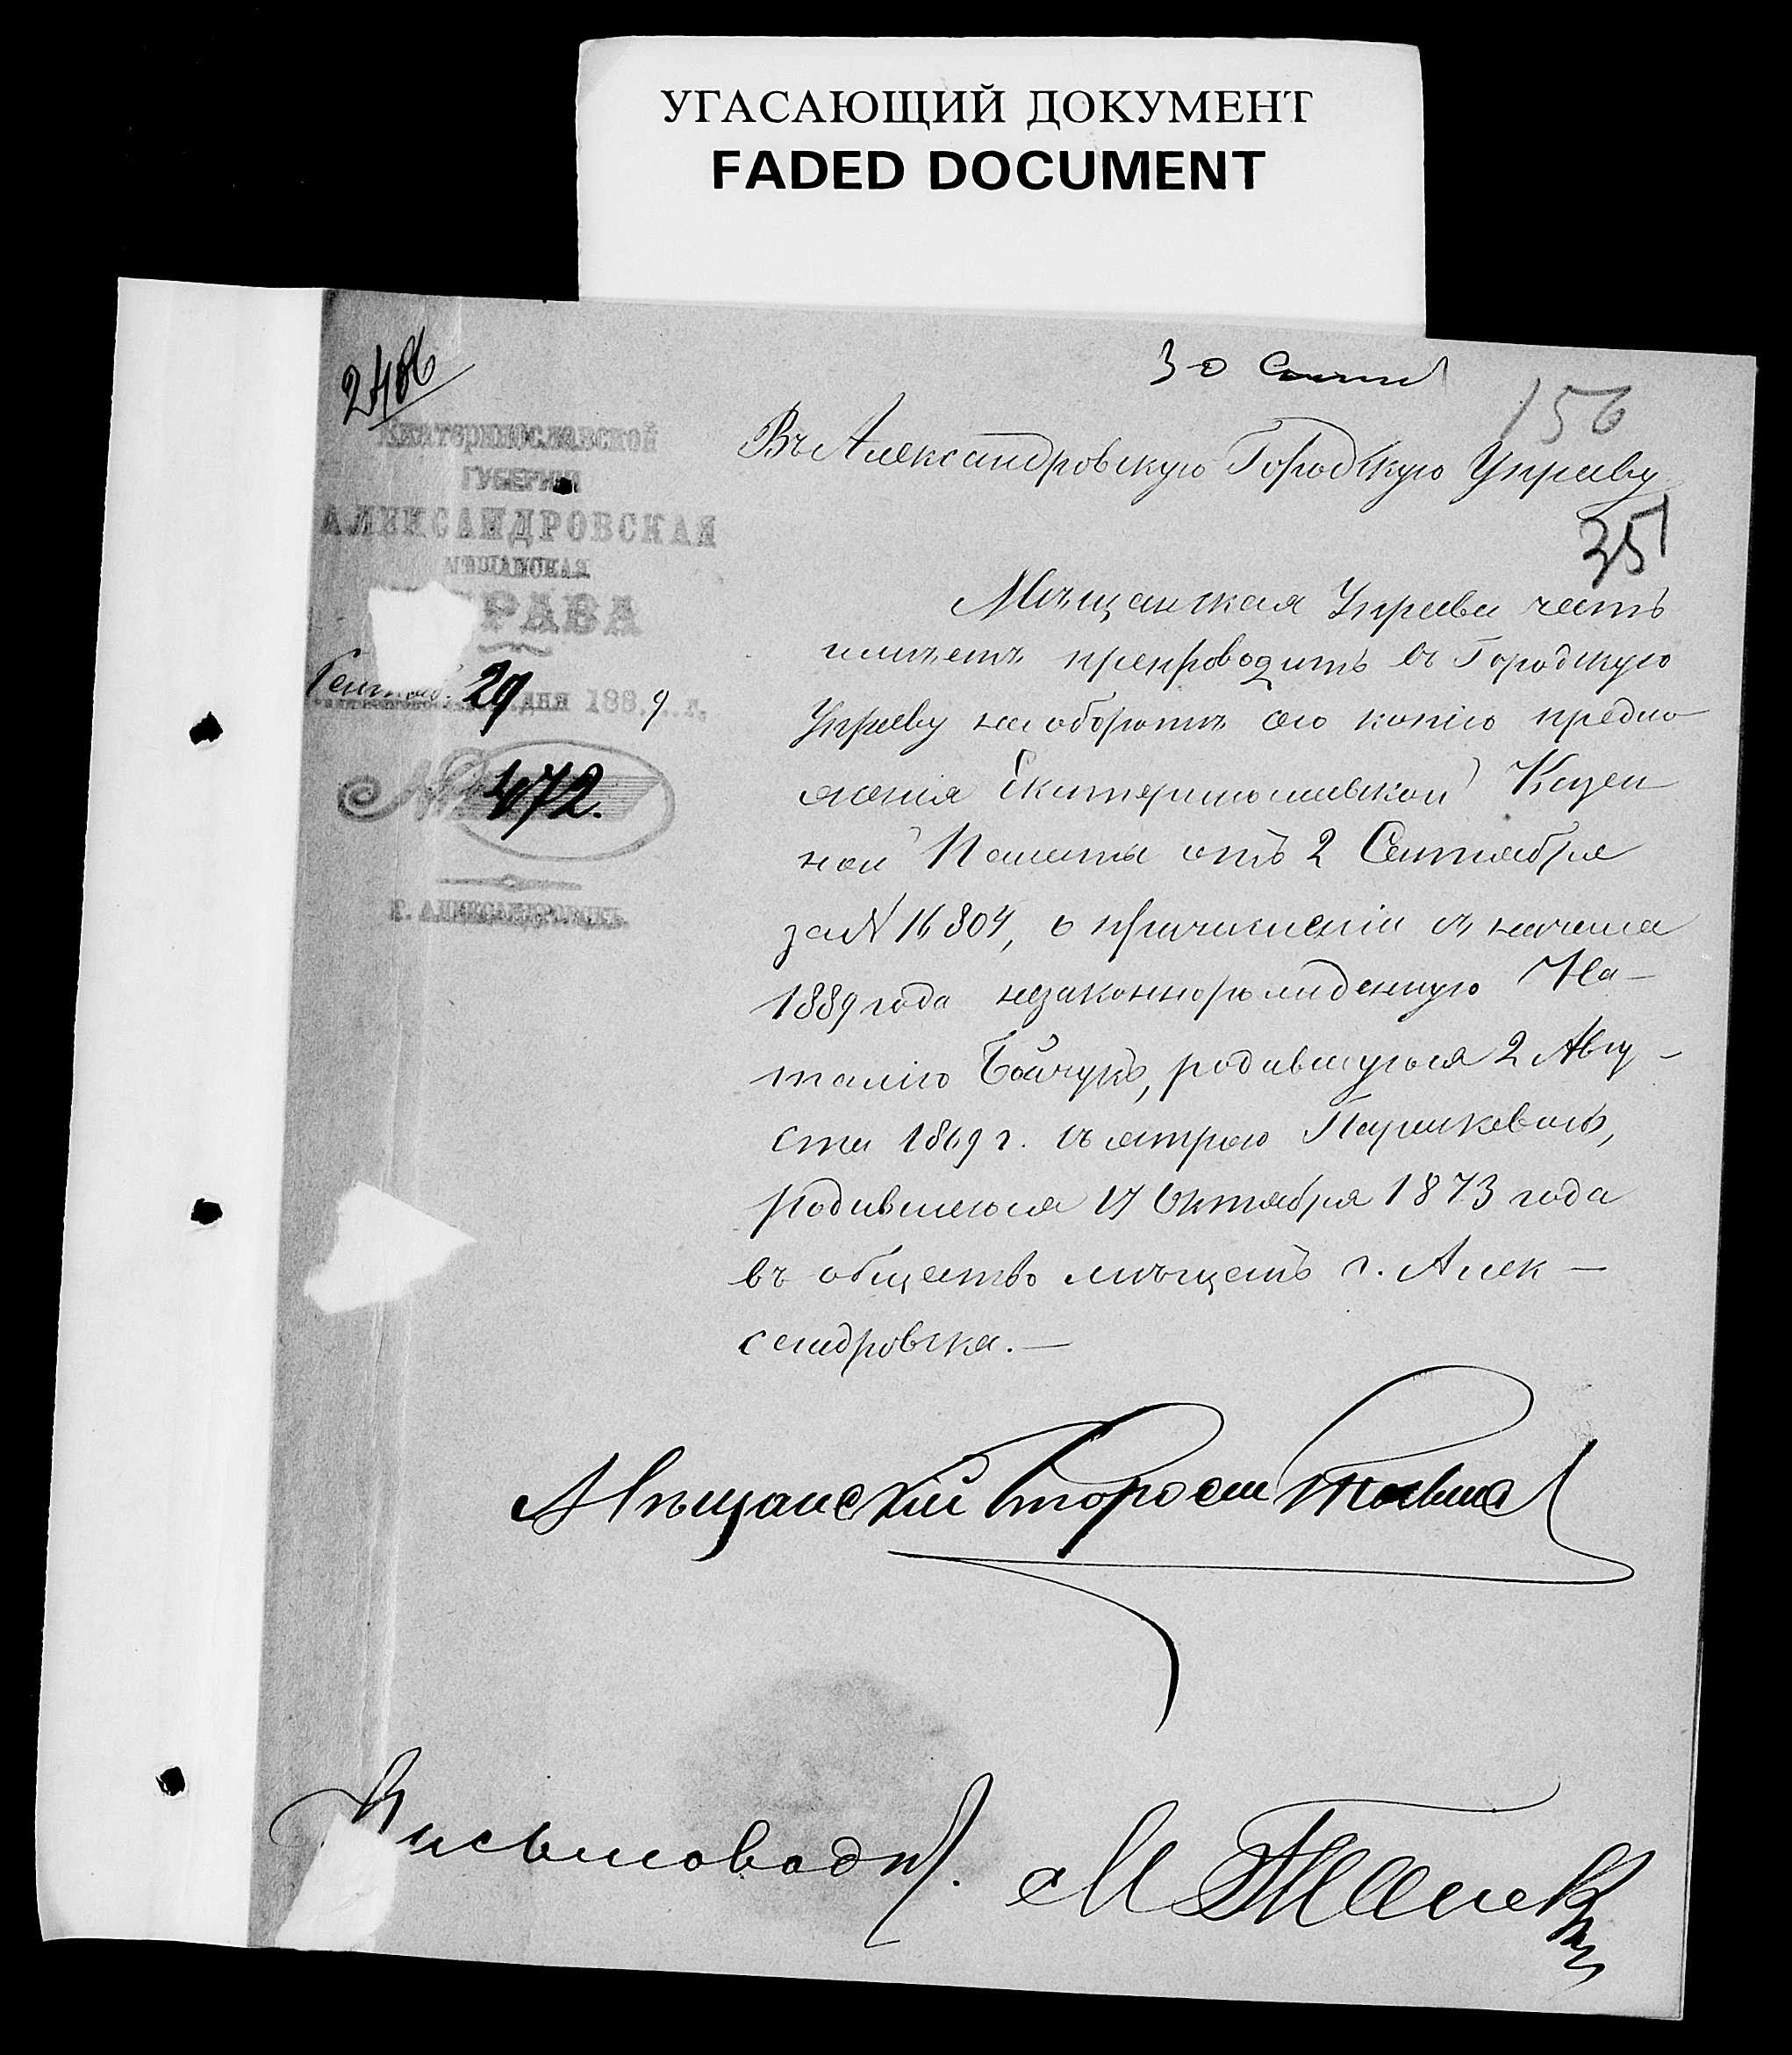 УГАСАЮЩИЙ ДОКУМЕНТ
FADED DOCUMENT
2486
30 Сент
156
Екатеринославской
ГУБЕРНИИ
АЛЕКСАНДРОВСКАЯ
МѢЩАНСКАЯ
РАВА
29 дня 1889 г.
№ 472.
Г. АЛЕКСАНДРОВСКЪ.
Въ Александровскую Городскую Управу
35
Мѣщанская Управа честь
имѣетъ препроводить въ Городскую
Управу на оборотѣ сего копію предло
женія Екатеринославской Казен
ной Палаты отъ 2 Сентября
за № 16804, о причисленіи съ начала
1889 года незаконнорожденную На-
талію Бойчукъ, родившуюся 2 Авгу-
ста 1869 г. съ сестрою Парасковіею,
родившеюся 17 Октября 1873 года
въ общество мѣщанъ г. Алек-
сандровска.—
Мѣщанскій Староста
Письмовод.